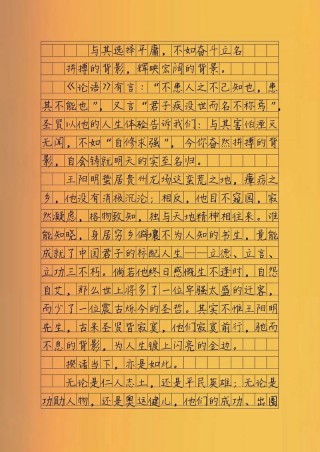 与其选择平庸，不如奋斗立名
拼搏的背影，辉映宏阔的背景。
《论语》有言：“不患人之不己知也，患
其不能也”，又言“君子疾没世而名不称焉”，
圣贤以他的人生体验告诉我们：与其害怕湮灭
无闻，不如“自修求强”，今你奋然拼搏的背
影，自会铸就明天的实至名归。
王阳明蛰居贵州龙场这蛮荒之地，瘴疠之
乡，他没有消极沉沦；相反，他目不窥园，寂
然凝虑，格物致知，独与天地精神相往来。谁
能知晓，身居穷乡僻壤不为人知的书生，竟能
成就了中国君子的标配人生——立德、立言、
立功三不朽。倘若他终日感慨生不逢时，自怨
自艾，那么世上将多了一位牢骚太盛的迁客，
而少了一位震古烁今的圣哲。其实不惟王阳明
先生，古来圣贤皆寂寞，他们寂寞前行，驰而
不息的背影，为人生镀上闪亮的金边。
揆诸当下，亦是如此。
无论是仁人志士，还是平民英雄；无论是
功勋人物，还是奥运健儿，他们的成功、出圈